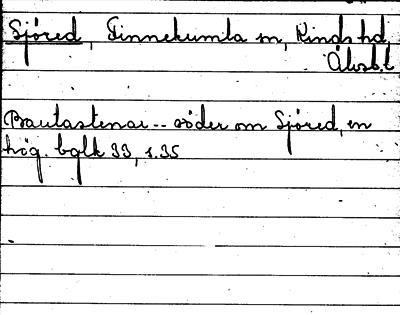 Sjöred, Finnekumla sn, Kinds hd,
Älvsb.l
Bautastenar -- söder om Sjöred, en
hög. bglk 33, s.35